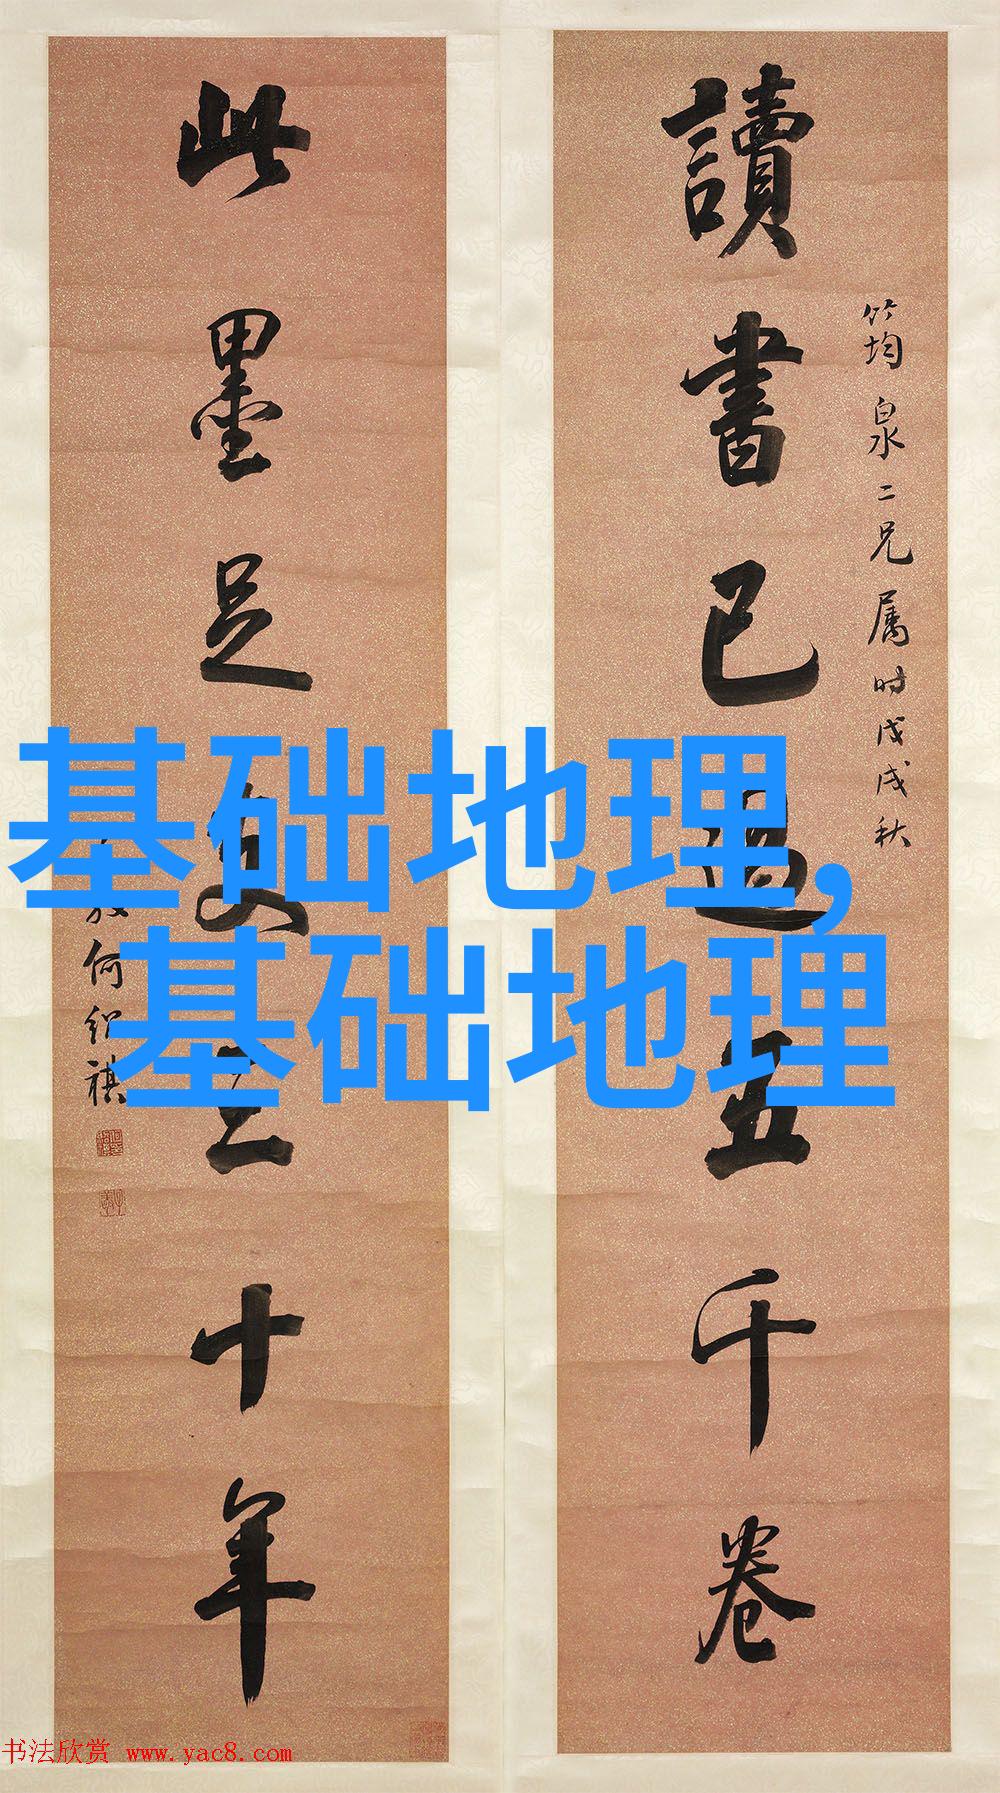 讀書已過五千卷
竹均泉二兄属时戊戌秋
此墨足支三十年
何紹祺
基础地理,
基础地理
书法欣赏 www.yac8.com